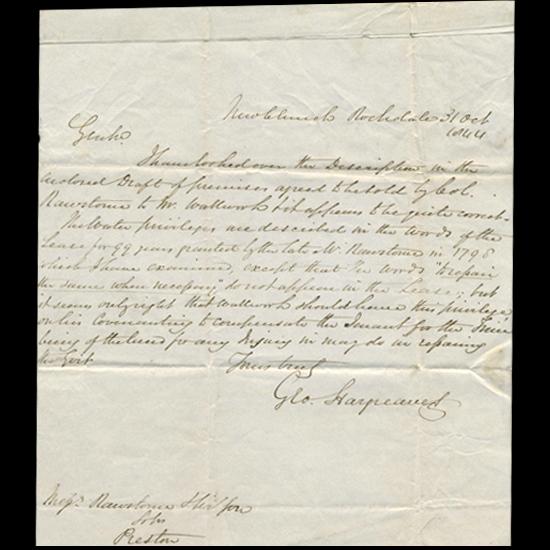 Newchurch Rochdale 31 Oct
1844
Gentn.
I have looked over the Description in the
enclosed Draft of premises agreed to be sold by Col.
Rawstorne to Mr. Wallwork & it appears to be quite correct.
The Water privileges are described in the words of the
Lease for 99 years granted by the late Mr Rawstorne in 1798
which I have examined, except that the words "to repair
the same when necessary" do not appear in the Lease, but
it seems only right that Wallwork should have this privilege
on his Covenanting to compensate the Tenant for the time
being of the land for any Injury he may do in repairing
the
Yours truly
Geo. Hargreaves
Messrs. Rawstorne &
Sols
Preston